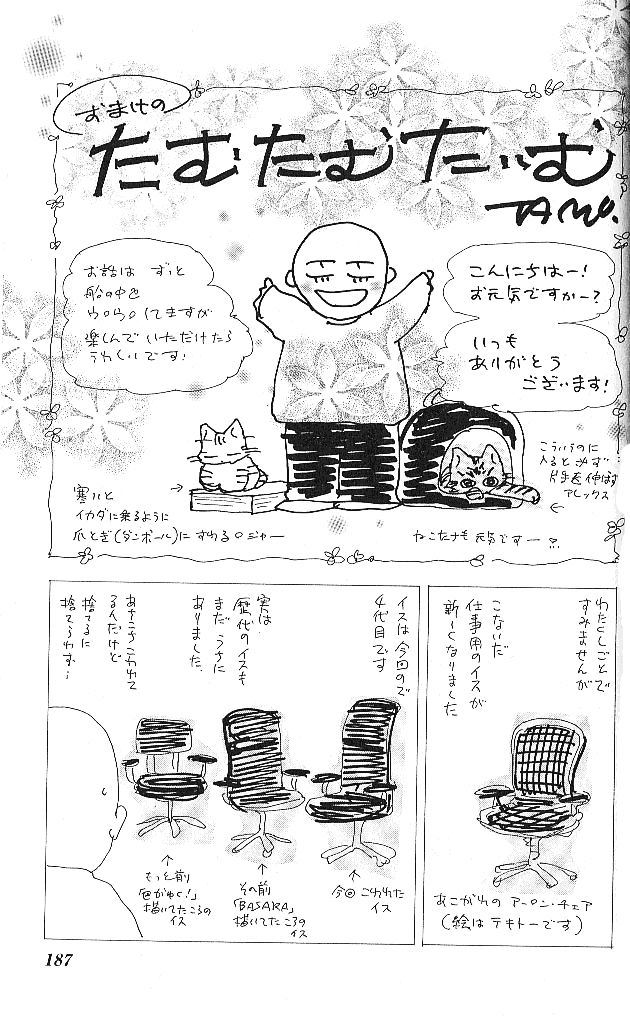 おまけの
たむたむたいむ
TAMU.
こんにちはー!
お元気ですかー?
いつも
ありがとう
ございます!
お話は ずっと
船の中を
ウロウロしてますが
楽しんで いただけたら
うれしいです!
寒いと
イカダに乗るように
爪とぎ(ダンボール)に すわるロジャー
こういうのに
入ると必ず
片手を伸ばす
アレックス
ねこたちも 元気ですー
わたくしごとで
すみませんが
こないだ
仕事用のイスが
新しくなりました
あこがれの アーロン・チェア
(絵は テキトーです)
イスは今回ので
4代目です
実は
歴代のイスも
まだ うちに
ありました
あちこちこわれて
るんだけど
捨てるに
捨てられず…
今回 こわれた
イス
その前
「BASARA」
描いてたころの
イス
もっと前
「巴がゆく!」
描いてたころの
イス
187